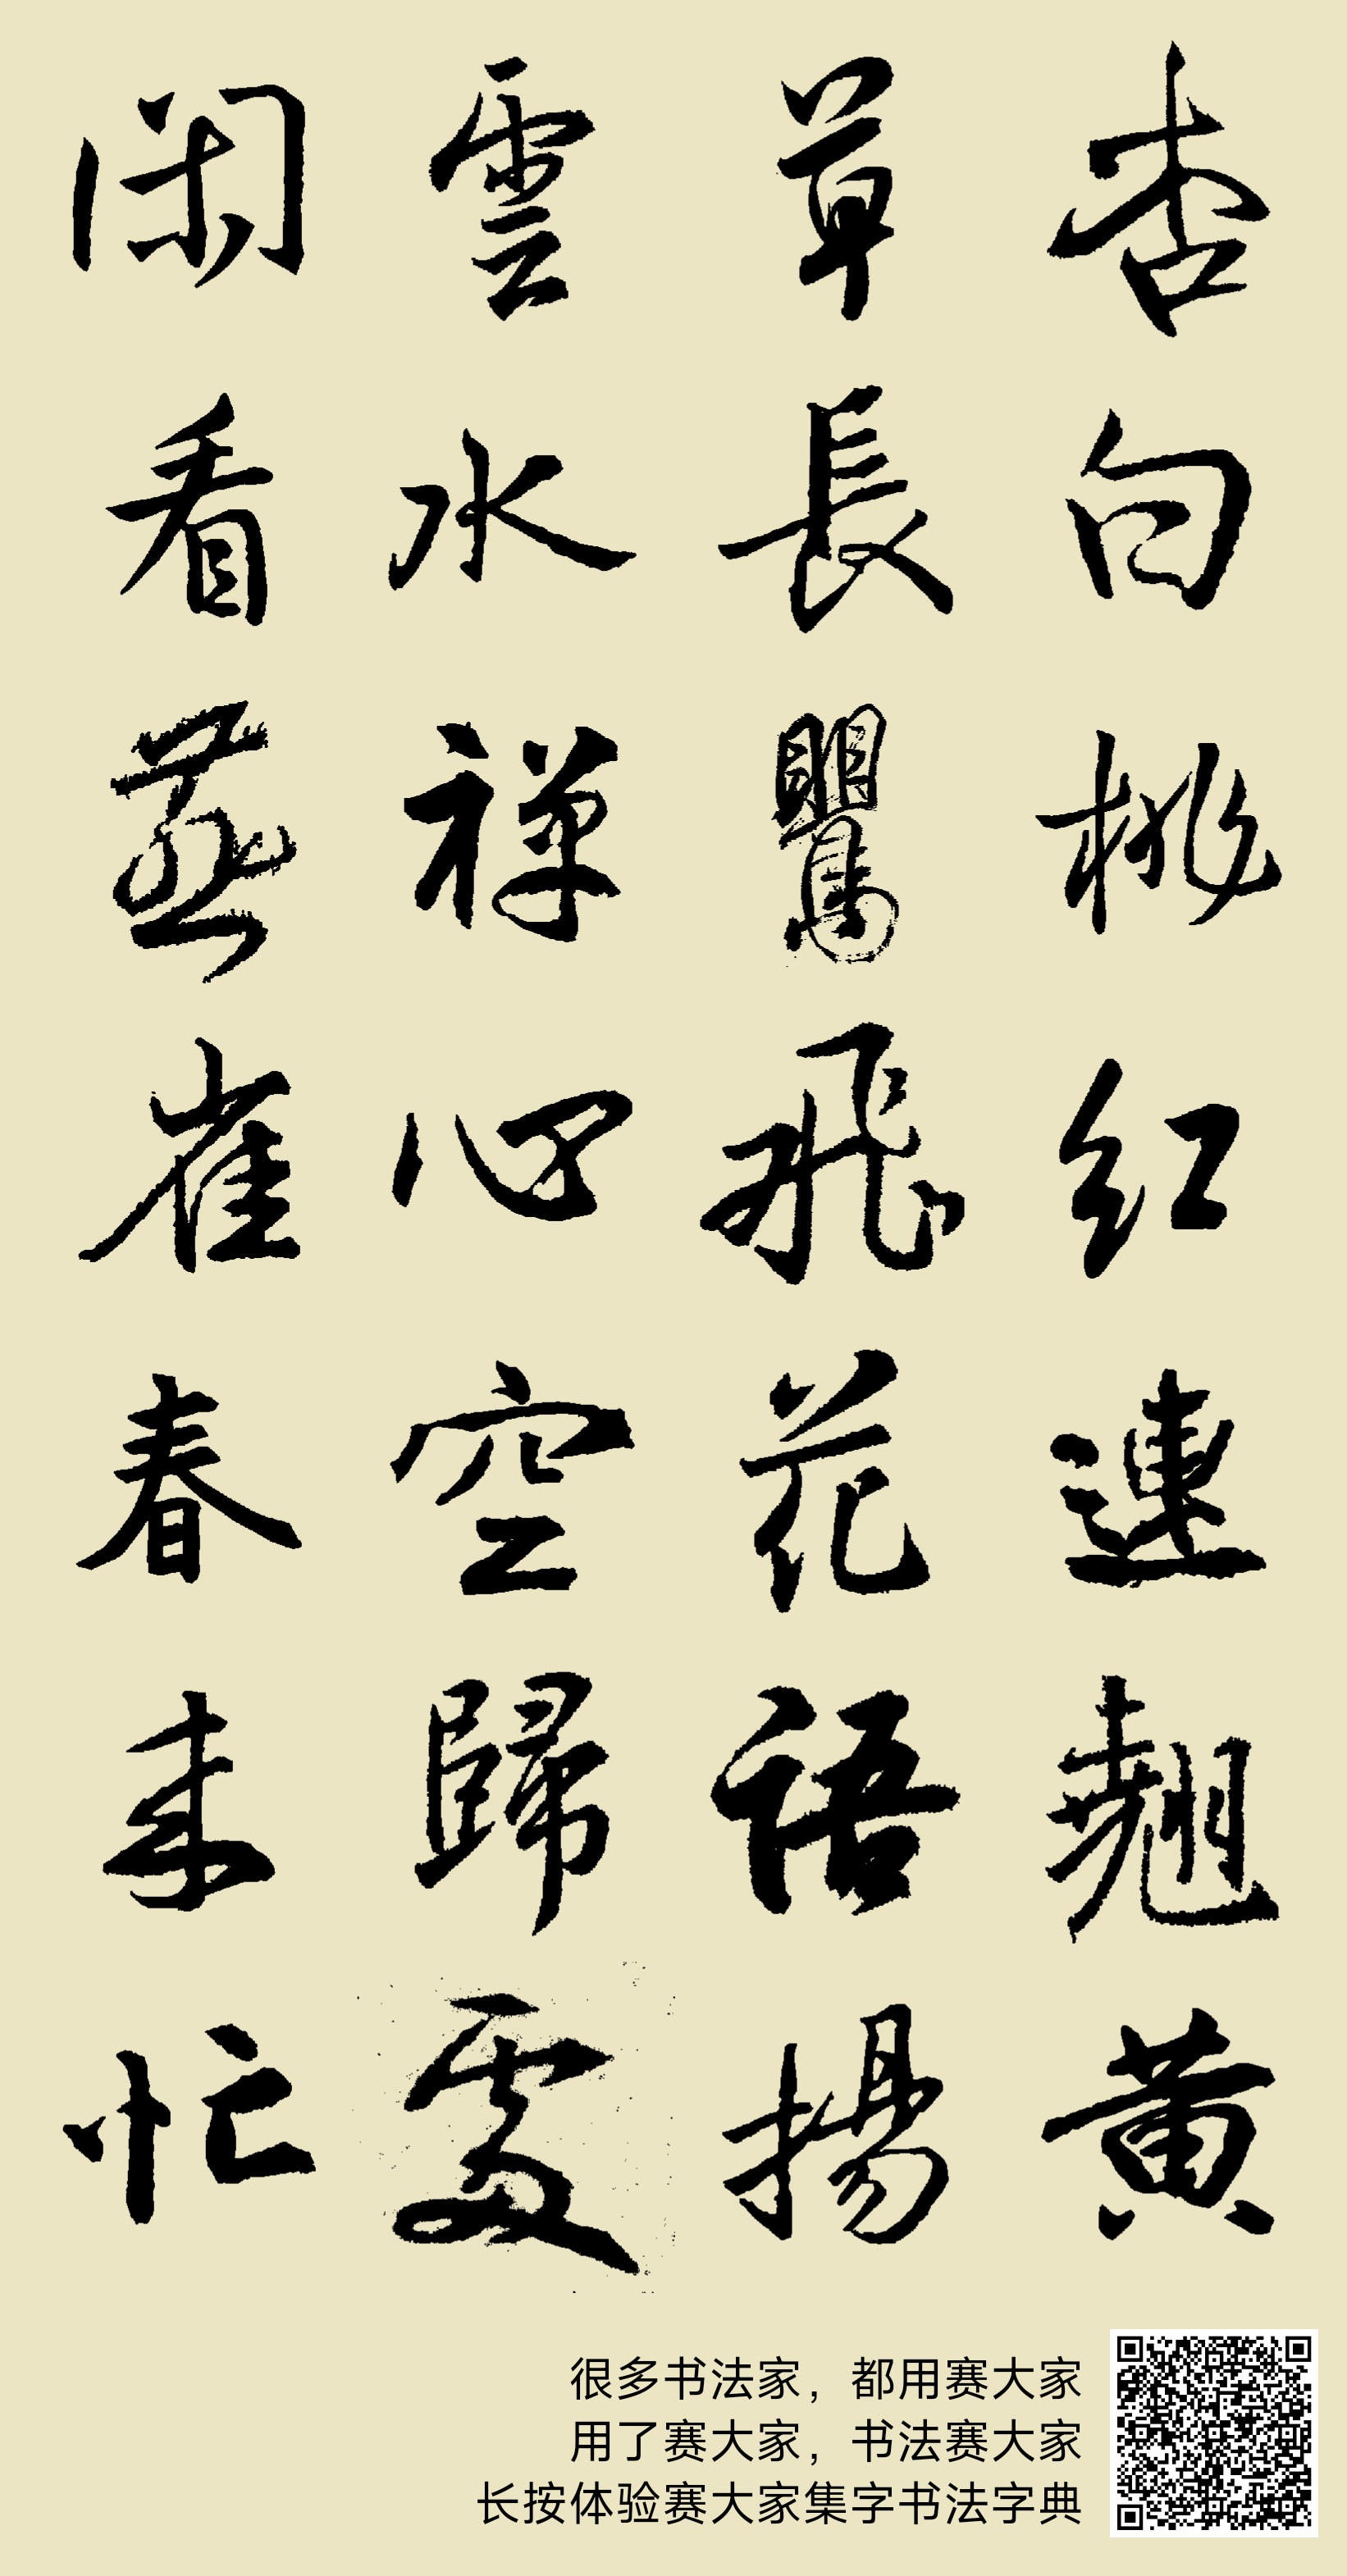 杏白桃红連翹黄
草長鸎飛花語揚
雲水禅心空歸處
閑看燕雀春来忙
很多书法家，都用赛大家
用了赛大家，书法赛大家
长按体验赛大家集字书法字典